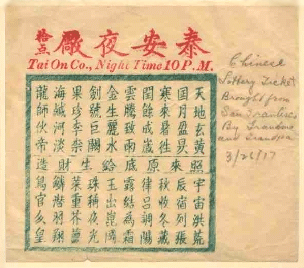 泰安夜廠
拾点
Tai On Co., Night Time 10 P.M.
天地玄黃
日月盈昃
寒來暑往
閏餘成歲
雲騰致雨
金生麗水
劍號巨闕
果珍李柰
海鹹河淡
龍師火帝
照來原底給生財造
宇宙洪荒
辰宿列張
秋收冬藏
律呂調陽
露結為霜
玉出崑岡
珠稱夜光
菜重芥薑
鱗潛羽翔
鳥官人皇
Chinese
Lottery Ticket
Brought from
San Francisco
By Grandma
and Grandpa
3/26/17